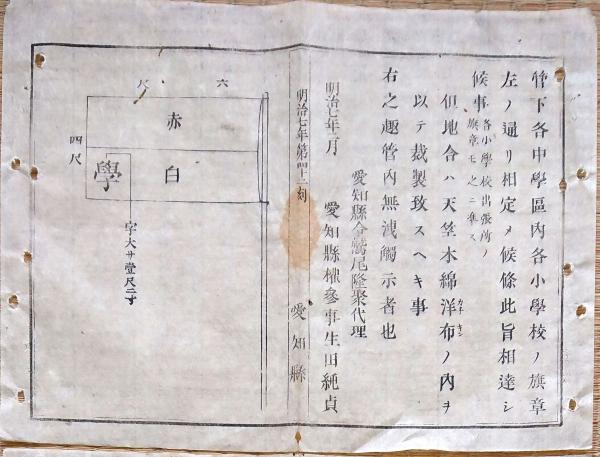 管下各中學區内各小學校ノ旗章
左ノ通リ相定メ候條此旨相達シ
候事 各小學校出張所ノ
旗章モ之ニ準ス
但地合ハ天竺木綿洋布ノ内ヲ
カナキン
以テ裁製致スヘキ事
右之趣管内無洩觸示者也
愛知縣令鷲尾隆聚代理
明治七年 月 愛知縣權參事生田純貞
明治七年第四十二刻 愛知縣
六尺
赤
白
學
四尺
字大サ壹尺二寸